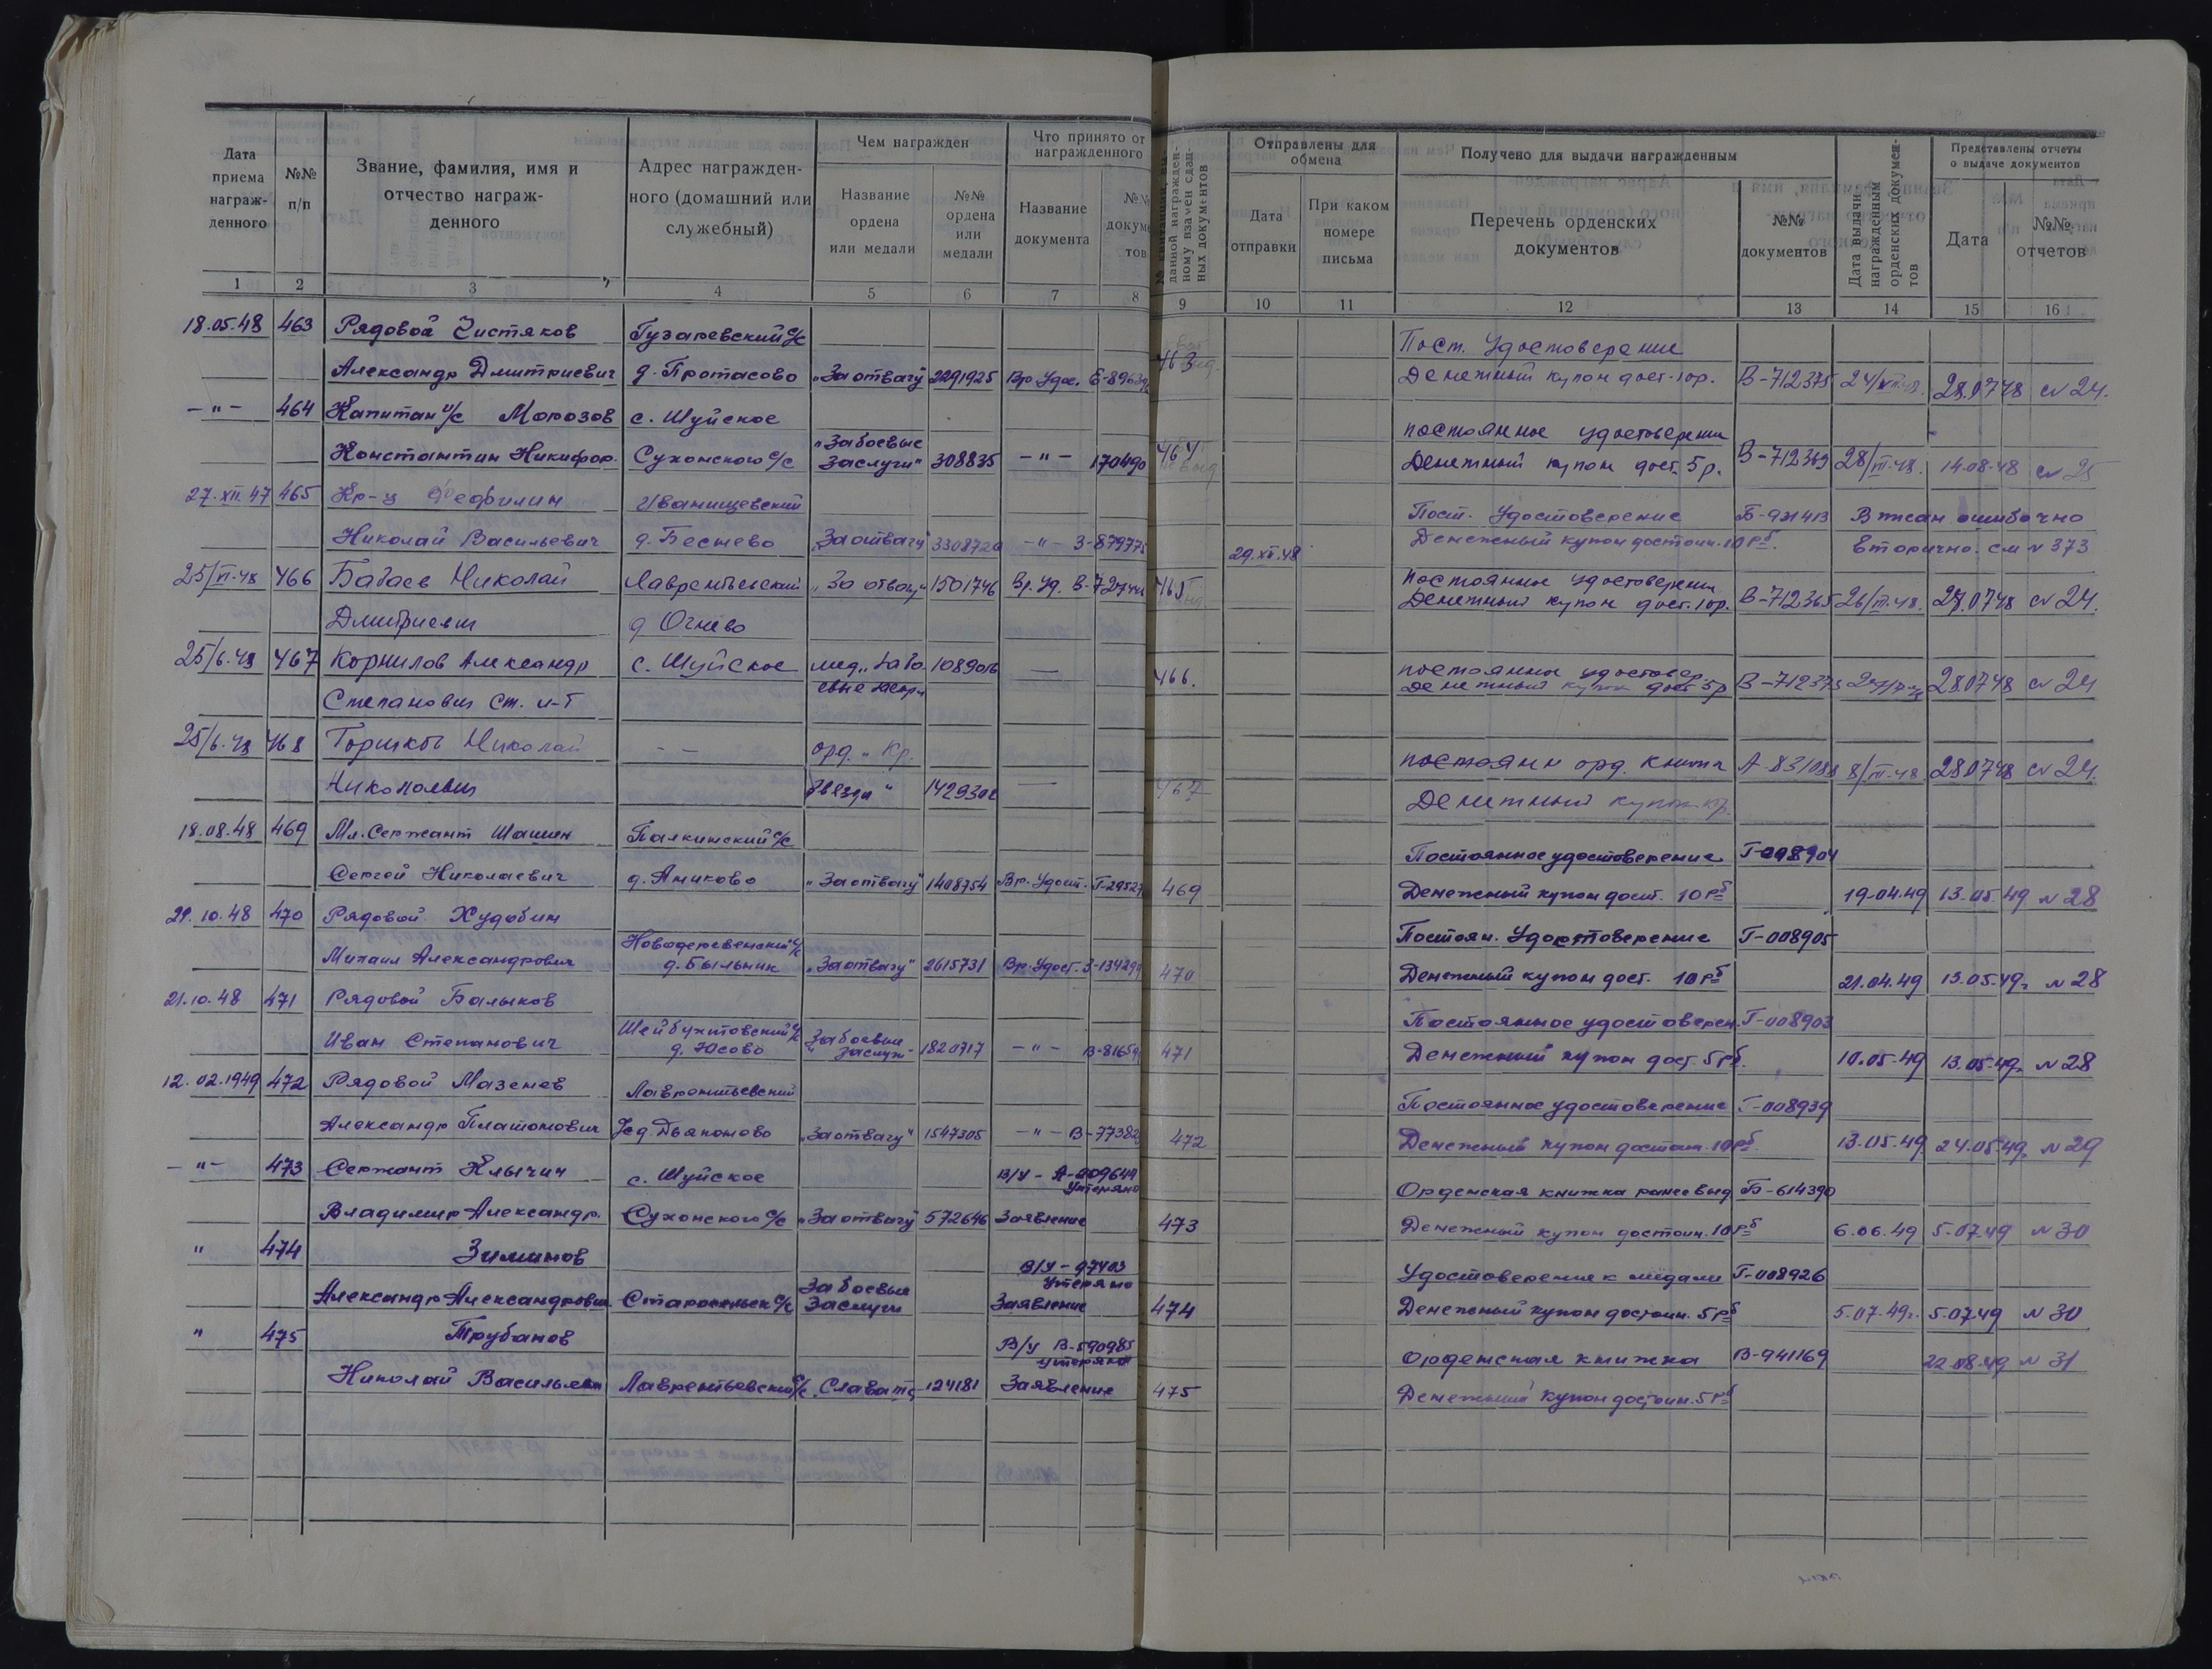 Дата приема награжденного
№№ п/п
Звание, фамилия, имя и отчество награжденного
Адрес награжденного (домашний или служебный)
Чем награжден
Название ордена или медали
№№ ордена или медали
Что принято от награжденного
Название документа
Отправлены для обмена
Дата отправки
При каком номере письма
Получено для выдачи награжденным
Перечень орденских документов
№№ документов
Дата выдачи награжденным орденских документов
Представлены отчеты о выдаче документов
Дата
№№ отчетов
1 2 3 4 5 6 7 8 9 10 11 12 13 14 15 16
18.05.48 463 Рядовой Чистяков Гузаревский с/с Пост. Удостоверение
Александр Дмитриевич д. Протасово „За отвагу" 2291925 Вр. Удос. 463 Денежный купон дост. 10р. В-712375 28.07.48 №24.
-"- 464 Капитан Морозов с. Шуйское постоянное удостоверение
Константин Никифор. Сухонского с/с „За боевые заслуги" 308835 -"- 170490 464 Денежный купон дост. 5р. В-712369 28/VII.48. 14.08.48 №25
27.XII.47 465 Кр-ц Феофилин Иванищевский Пост. Удостоверение Б-921413 Вписан ошибочно
Николай Васильевич д. Беснево „За отвагу" 3308720 -"- З-879775 29.XII.48 Денежный купон достоин. 10рб. Вторично. см №373
25/VI.48 466 Бабаев Николай Лаврентьевский „За отвагу" 1501746 Вр. Уд. 465 постоянное удостоверение
Денежный купон дост. 10р. В-712365 26/VII.48. 28.07.48 №24.
Дмитриевич д Огнево
25/6.48 467 Корнилов Александр с. Шуйское мед. „За бо- 1089016 — 466. постоянное удостовер.
Степанович ст. л-т Денежный купон дост 5р В-712373 28.07.48 №24
25/6.48 468 Горшков Николай -- орд. „Кр. постоянн орд. книжка А-831088 8/VII.48 28.07.48 №24.
Николаевич Звезда" — 467 Денежный купон
18.08.48 469 Мл. Сержант Шашин Палкинский с/с Постоянное удостоверение Г-008904
Сергей Николаевич д. Аниково „За отвагу" 1408754 Вр. Удост. 469 Денежный купон дост. 10рб 19.04.49 13.05.49 №28
29.10.48 470 Рядовой Худобин Постоян. Удостоверение Г-008905
Михаил Александрович Новодеревенский с/с д. Быльник „За отвагу" 2615731 Вр. Удост. 470 Денежный купон дост. 10рб 21.04.49 13.05.49г. №28
21.10.48 471 Рядовой Балыков Постоянное удостоверен. Г-008903
Иван Степанович Шейбухтовский с/с д. Юсово За боевые заслуги 1820717 -"- 471 Денежный купон дост. 5рб. 10.05.49 13.05.49г. №28
12.02.1949 472 Рядовой Мазенев Лаврентьевский Постоянное удостоверение Г-008939
Александр Платонович д. Дьяконово „За отвагу" 1547305 -"- 472 Денежный купон достоин. 10рб. 13.05.49 24.05.49г. №29
-"- 473 Сержант Клычин с. Шуйское В/У - А-209644 утеряно Орденская книжка ранее выд Б-614390
Владимир Александр. Сухонского с/с „За отвагу" 572646 Заявление 473 Денежный купон достоин. 10рб 6.06.49 5.07.49 №30
" 474 Зиминов В/У - 97403 утеряно Удостоверение к медали Г-008926
Александр Александрович За боевые заслуги Заявление 474 Денежный купон достоин. 5рб 5.07.49г. 5.07.49 №30
" 475 Трубанов В/У В-590985 утеряно Орденская книжка В-941169 22.08.49 №31
Николай Василье Лаврентьевский с/с Слава 124181 Заявление 475 Денежный купон достоин. 5рб